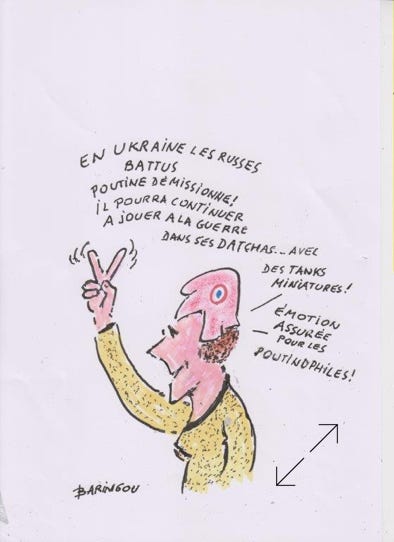 EN UKRAINE LES RUSSES
BATTUS
POUTINE DÉMISSIONNE!
IL POURRA CONTINUER
A JOUER A LA GUERRE
DANS SES DATCHAS... AVEC
DES TANKS
MINIATURES!
ÉMOTION
ASSURÉE
POUR LES
POUTINOPHILES!
BARINGOU